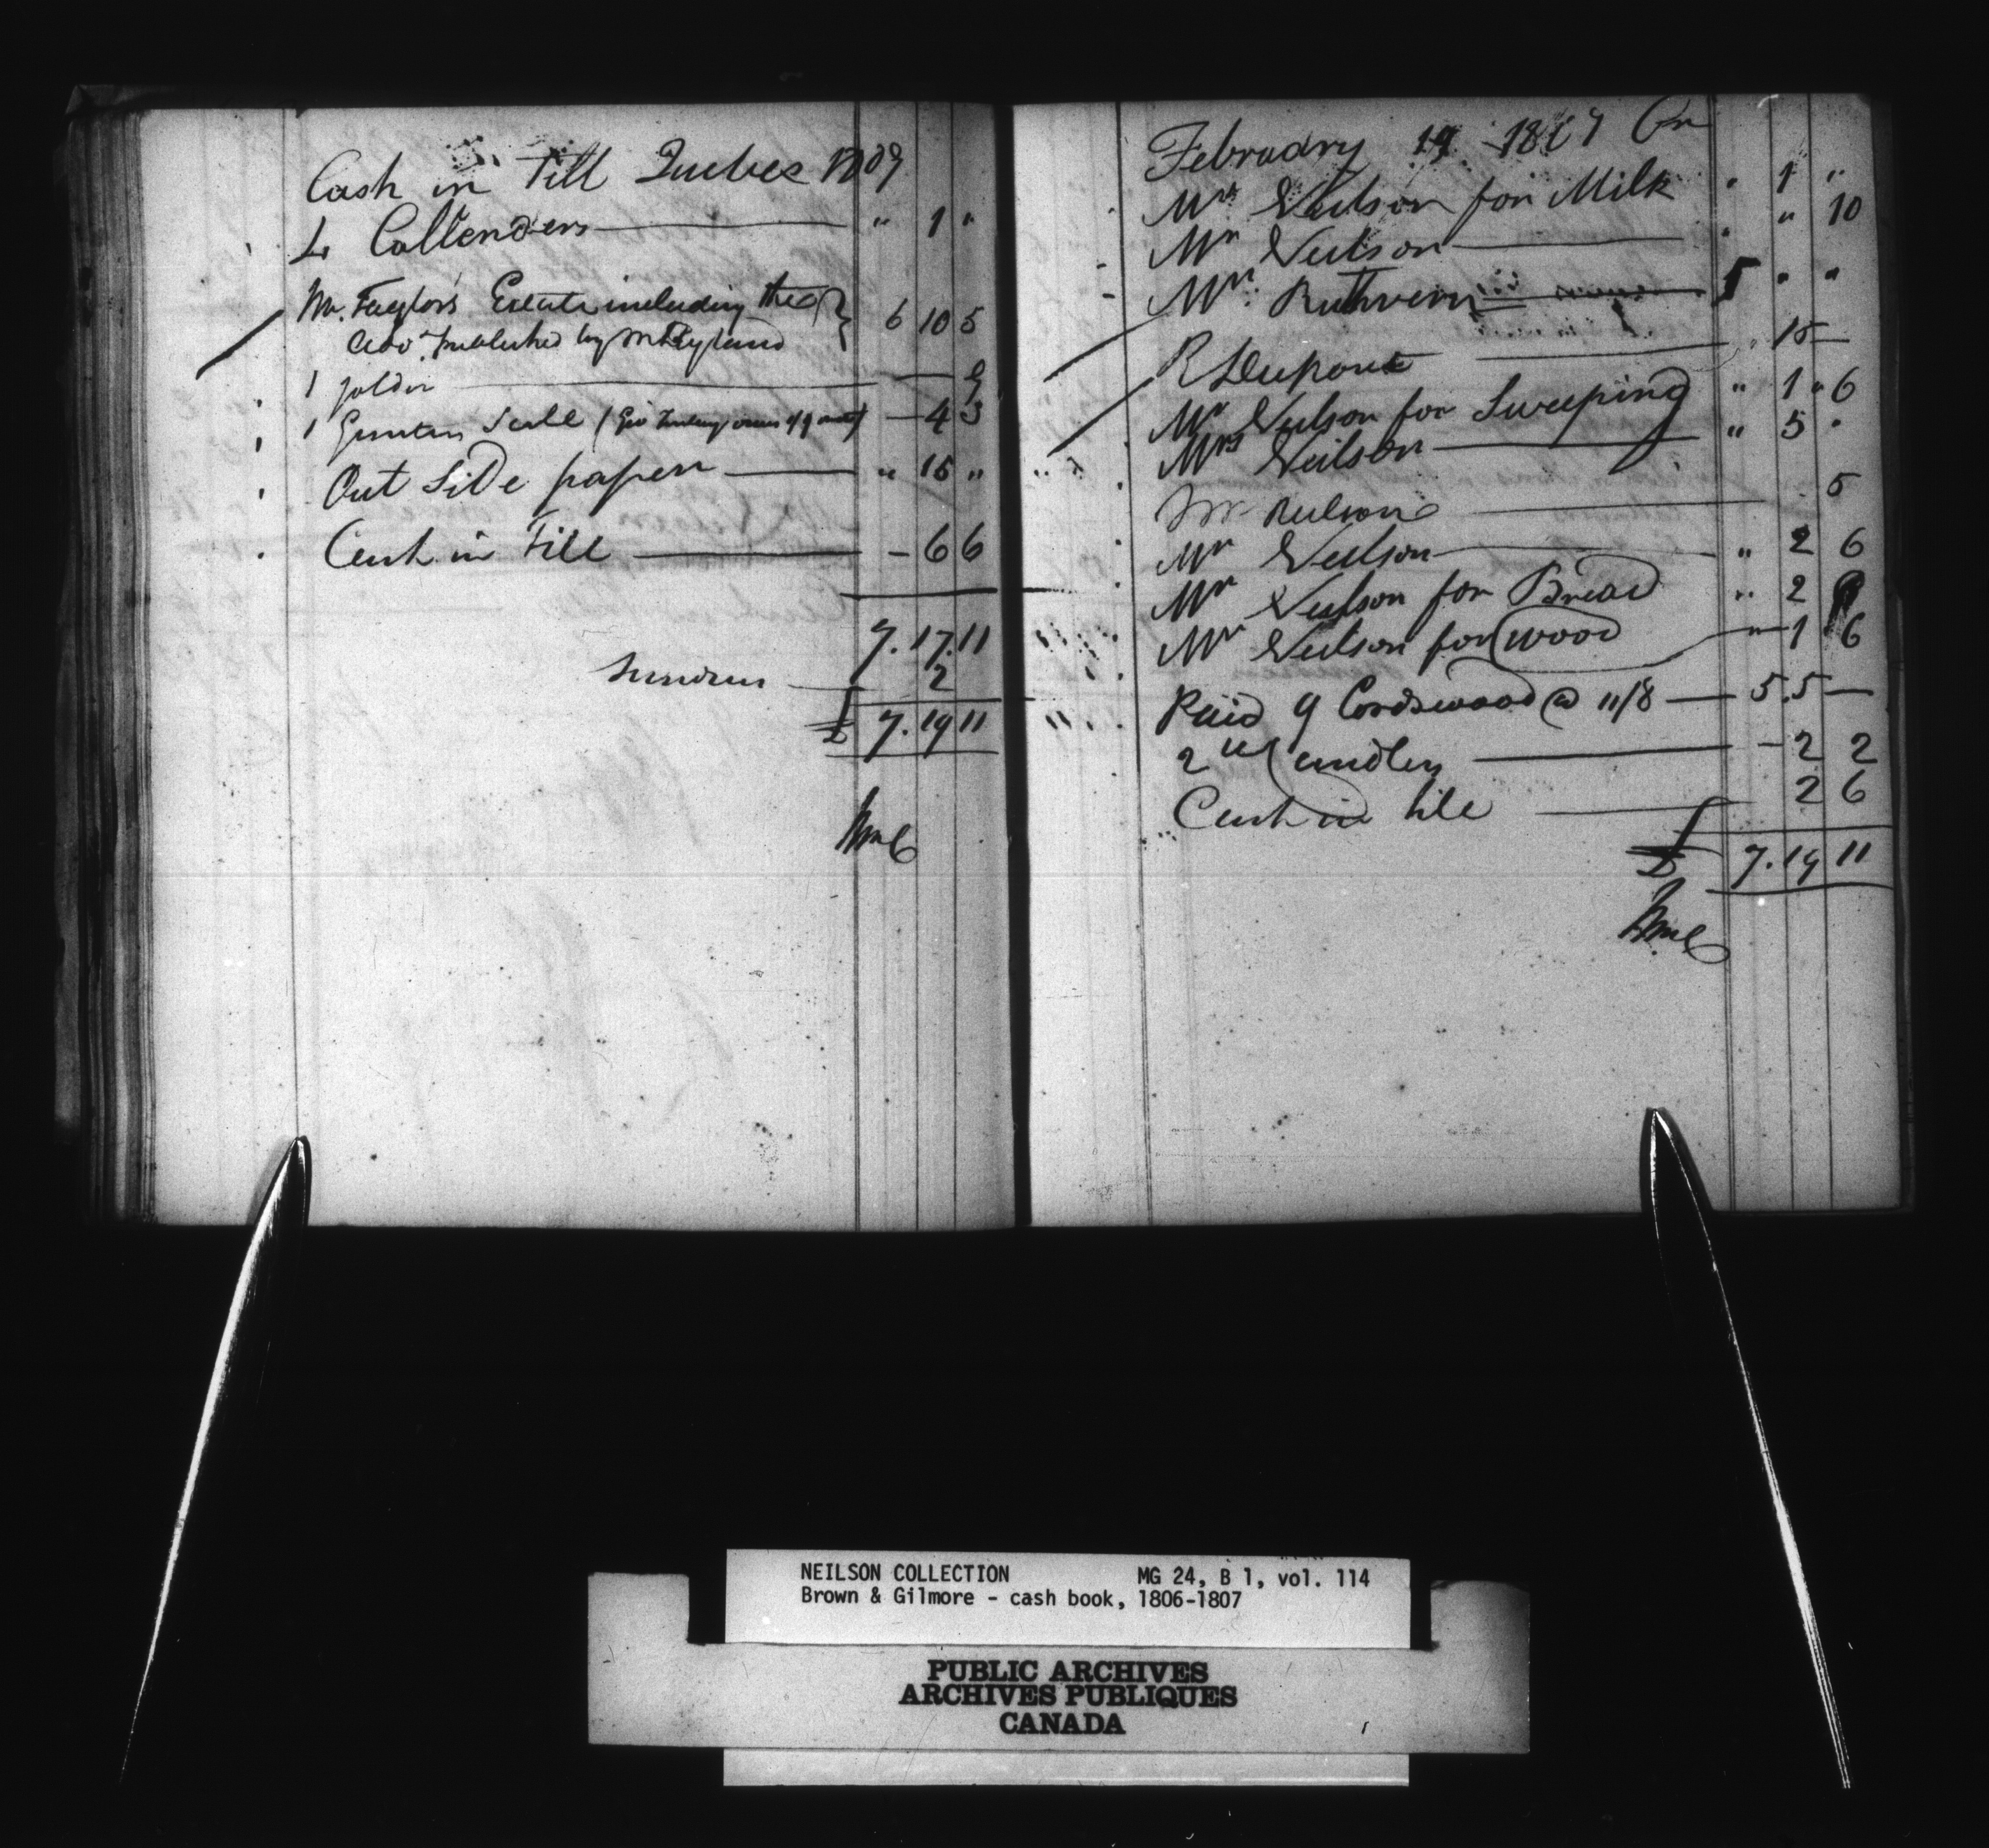 Cash in Till Quebec
4 Callenders " 1 "
Mr. Taylors Estate including the } 6 10 5
advt. furnished by Mr Ryland
1 — 9
1 Gunter Scale — 4 3
Out Side paper " 15 "
Cash in Till — 6 6
7.17.11
Sundries 2
£ 7.19 11
February 19 1807 Cr
Mr. Neilson for Milk " 1 "
Mr Neilson " " 10
Mr. Ruthvern " "
R Dupont 15 —
Mr Neilson for Sweeping " 1 " 6
Mrs Neilson " 5 "
Mr Neilson 5
Mr Neilson " 2 6
Mr Neilson for Bread " 2
Mr Neilson for wood " 1 6
Paid 9 Cords wood @ 11/8 5.5 —
2 lb Candles — 2 2
Cash in tile 2 6
£ 7.19 11
NEILSON COLLECTION MG 24, B 1, vol. 114
Brown & Gilmore - cash book, 1806-1807
PUBLIC ARCHIVES
ARCHIVES PUBLIQUES
CANADA